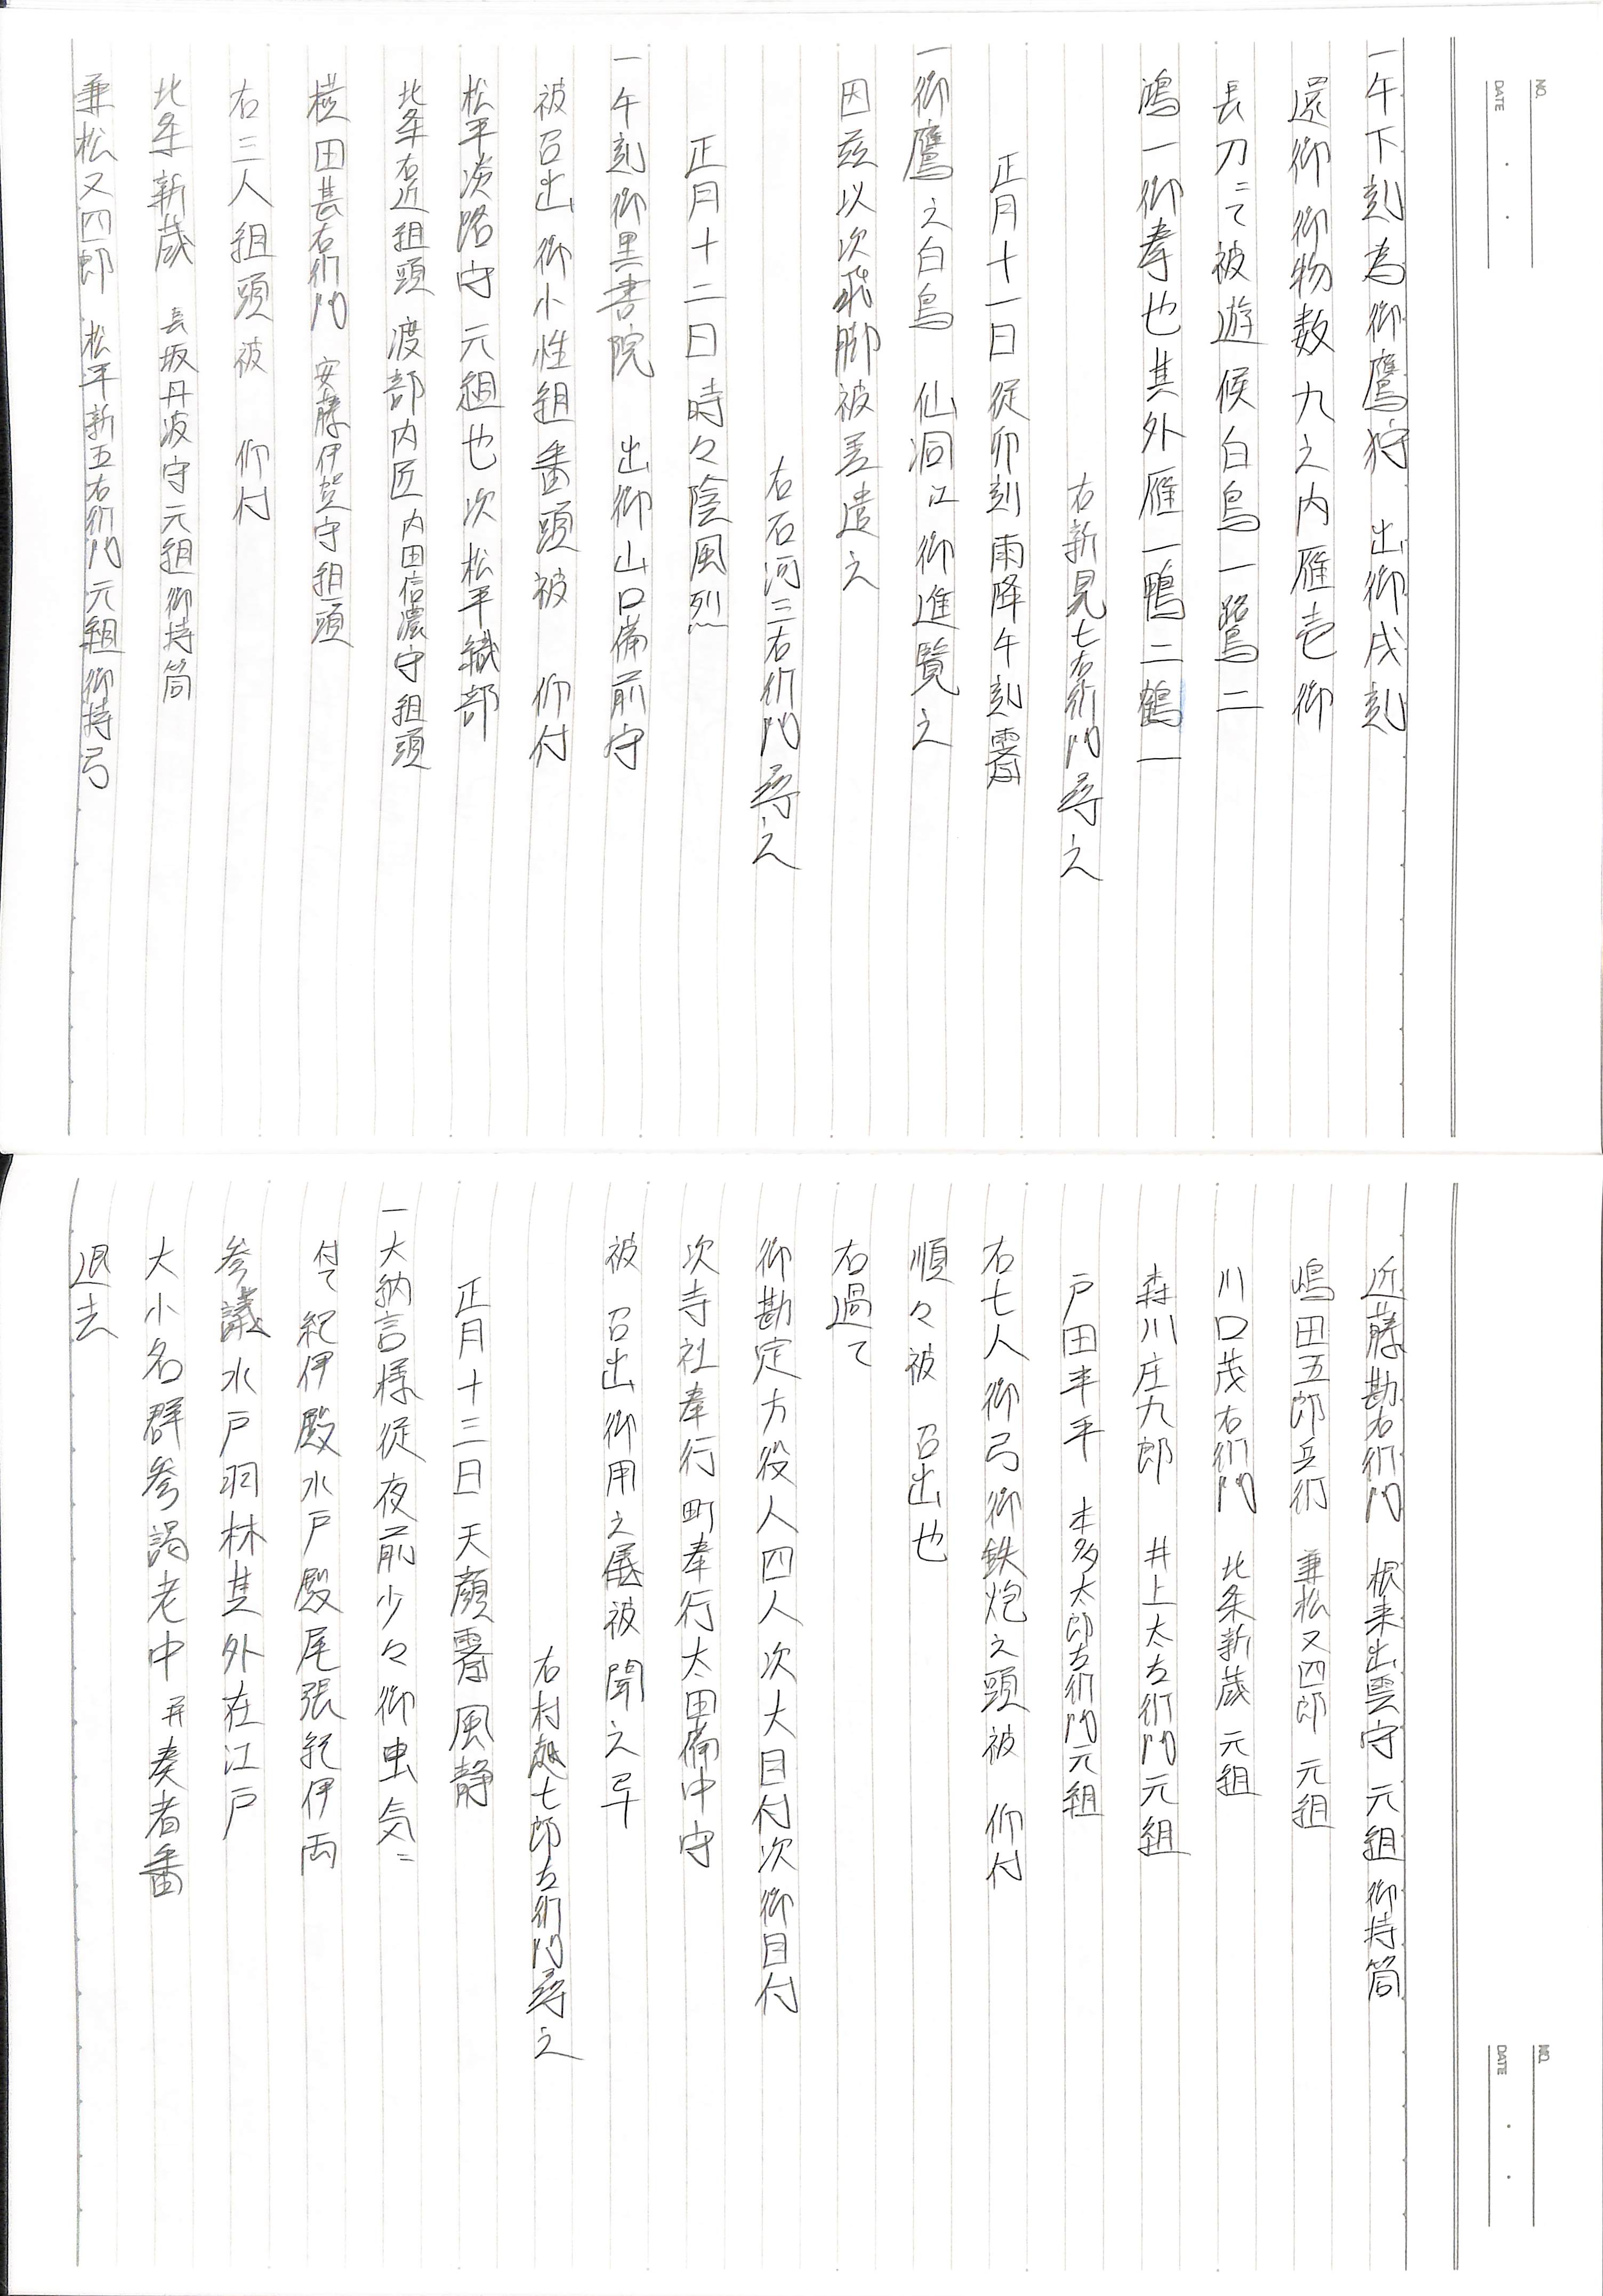 NO.
DATE
一午下刻為御鷹狩 出御戌刻
還御御物数九之内雁壱御
長刀ニて被遊候白鳥一鷺二
鴻一御拳也其外雁一鴨二鶴一
右新見七右衛門尋之
正月十一日従卯刻雨降午刻霽
一御鷹之白鳥 仙洞江御進覧之
因茲以次飛脚被差遣之
右石河三右衛門尋之
正月十二日時々陰風烈
一午刻御黒書院 出御山口備前守
被召出御小性組番頭被 仰付
松平淡路守元組也次松平織部
北条右近組頭 渡部内匠 内田信濃守組頭
横田甚右衛門 安藤伊賀守組頭
右三人組頭被 仰付
北条新蔵 長坂丹波守元組御持筒
兼松又四郎 松平新五右衛門元組御持弓
NO.
DATE
近藤勘右衛門 根来出雲守元組御持筒
嶋田五郎兵衛 兼松又四郎元組
川口茂右衛門 北条新蔵元組
森川庄九郎 井上太左衛門元組
戸田半平 本多太郎左衛門元組
右七人御弓御鉄炮之頭被 仰付
順々被 召出也
右過て
御勘定方役人四人次大目付次御目付
次寺社奉行町奉行太田備中守
被 召出御用之儀被聞之早
右村越七郎左衛門尋之
正月十三日天顔霽風静
一大納言様従夜前少々御虫気ニ
付て紀伊殿水戸殿尾張紀伊両
参議水戸羽林其外在江戸
大小名群参謁老中并奏者番
退去